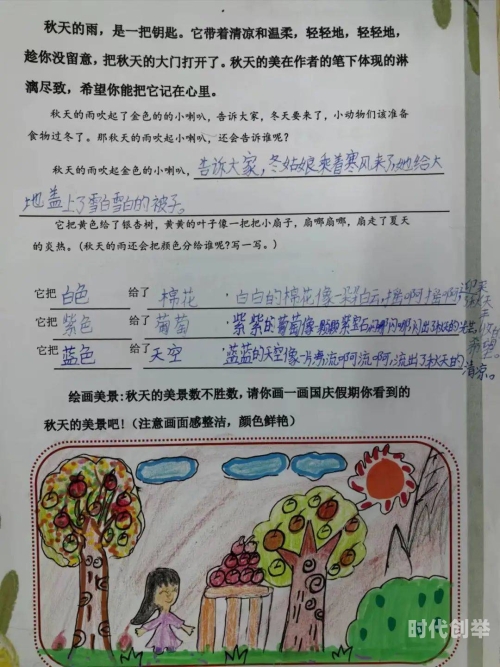 秋天的雨,是一把钥匙。它带着清凉和温柔,轻轻地,轻轻地,
趁你没留意,把秋天的大门打开了。秋天的美在作者的笔下体现的淋
漓尽致,希望你能把它记在心里。
秋天的雨吹起了金色的的小喇叭,告诉大家,冬天要来了,小动物们该准备
食物过冬了。那秋天的雨吹起小喇叭,还会告诉谁呢?
秋天的雨吹起金色的小喇叭,告诉大家,冬姑娘乘着寒风来了,她给大
地盖上了雪白雪白的被子。
它把黄色给了银杏树,黄黄的叶子像一把把小扇子,扇哪扇哪,扇走了夏天
的炎热。(秋天的雨还会把颜色分给谁呢?写一写。)
它把 白色 给了 棉花,白白的棉花像一朵朵白云,摇啊摇啊,
它把 紫色 给了 葡萄,紫紫的葡萄像一颗颗紫宝石,闪哪闪哪,闪出了秋天的
它把 蓝色 给了 天空,蓝蓝的天空像一片海,流啊流啊,流出了秋天的
清凉。
绘画美景:秋天的美景数不胜数,请你画一画国庆假期你看到的
秋天的美景吧!(注意画面感整洁,颜色鲜艳)
时代创举